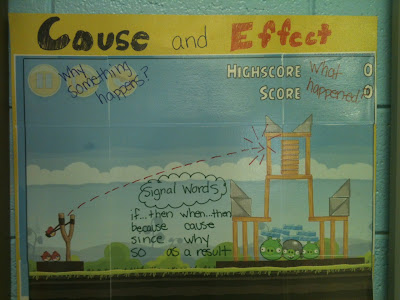 Cause and Effect
Why something happens?
HIGHSCORE 0
SCORE 0
What happened?
Signal Words
if...then when...then
because cause
since why
so as a result